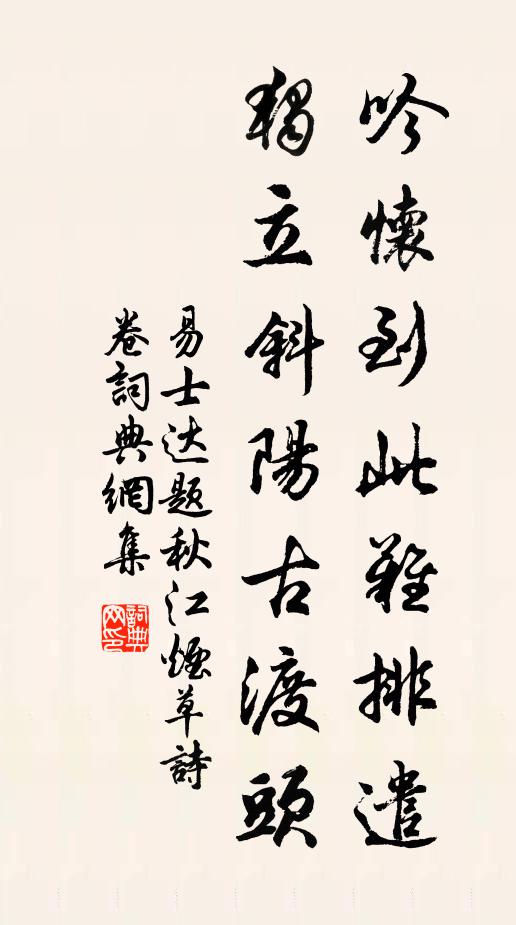 吟懷到此難排遣
獨立斜陽古渡頭
易士达题秋江煙草詩
卷詞典網集
詞典
网印